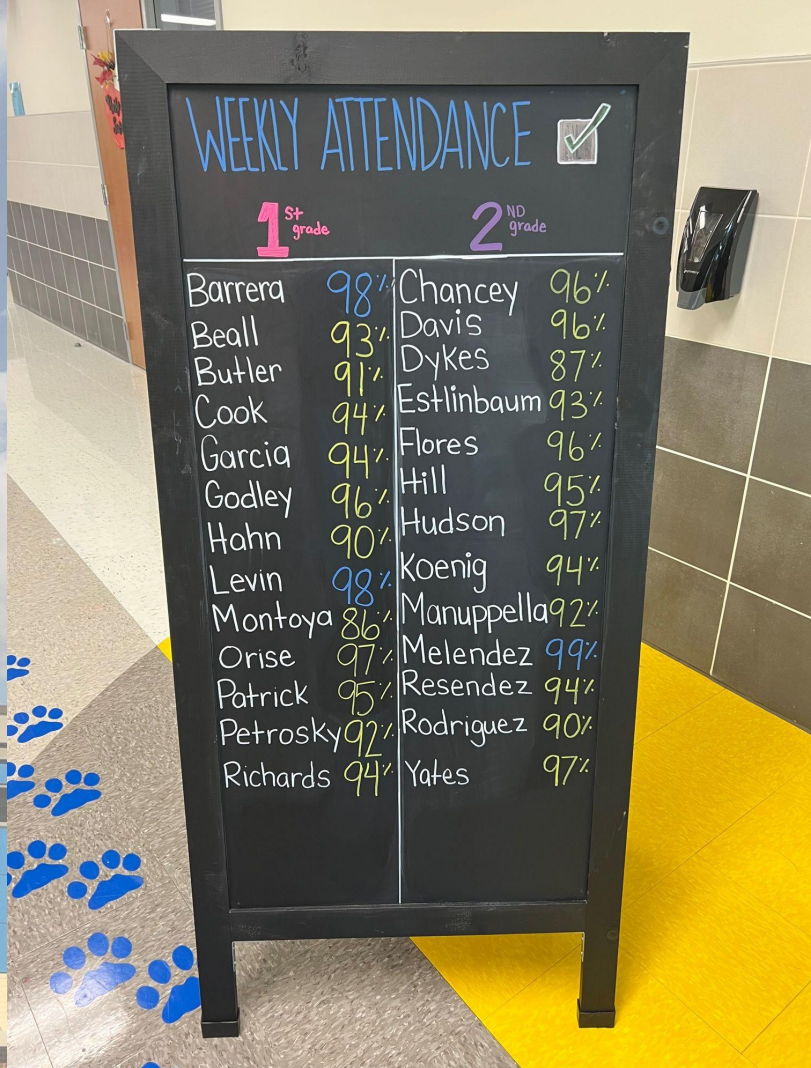 WEEKLY ATTENDANCE
1st grade
2ND grade
Barrera 98%
Beall 93%
Butler 91%
Cook 94%
Garcia 94%
Godley 96%
Hahn 90%
Levin 98%
Montoya 86%
Orise 97%
Patrick 95%
Petrosky 92%
Richards 94%
Chancey 96%
Davis 96%
Dykes 87%
Estlinbaum 93%
Flores 96%
Hill 95%
Hudson 97%
Koenig 94%
Manuppella 92%
Melendez 99%
Resendez 94%
Rodriguez 90%
Yates 97%